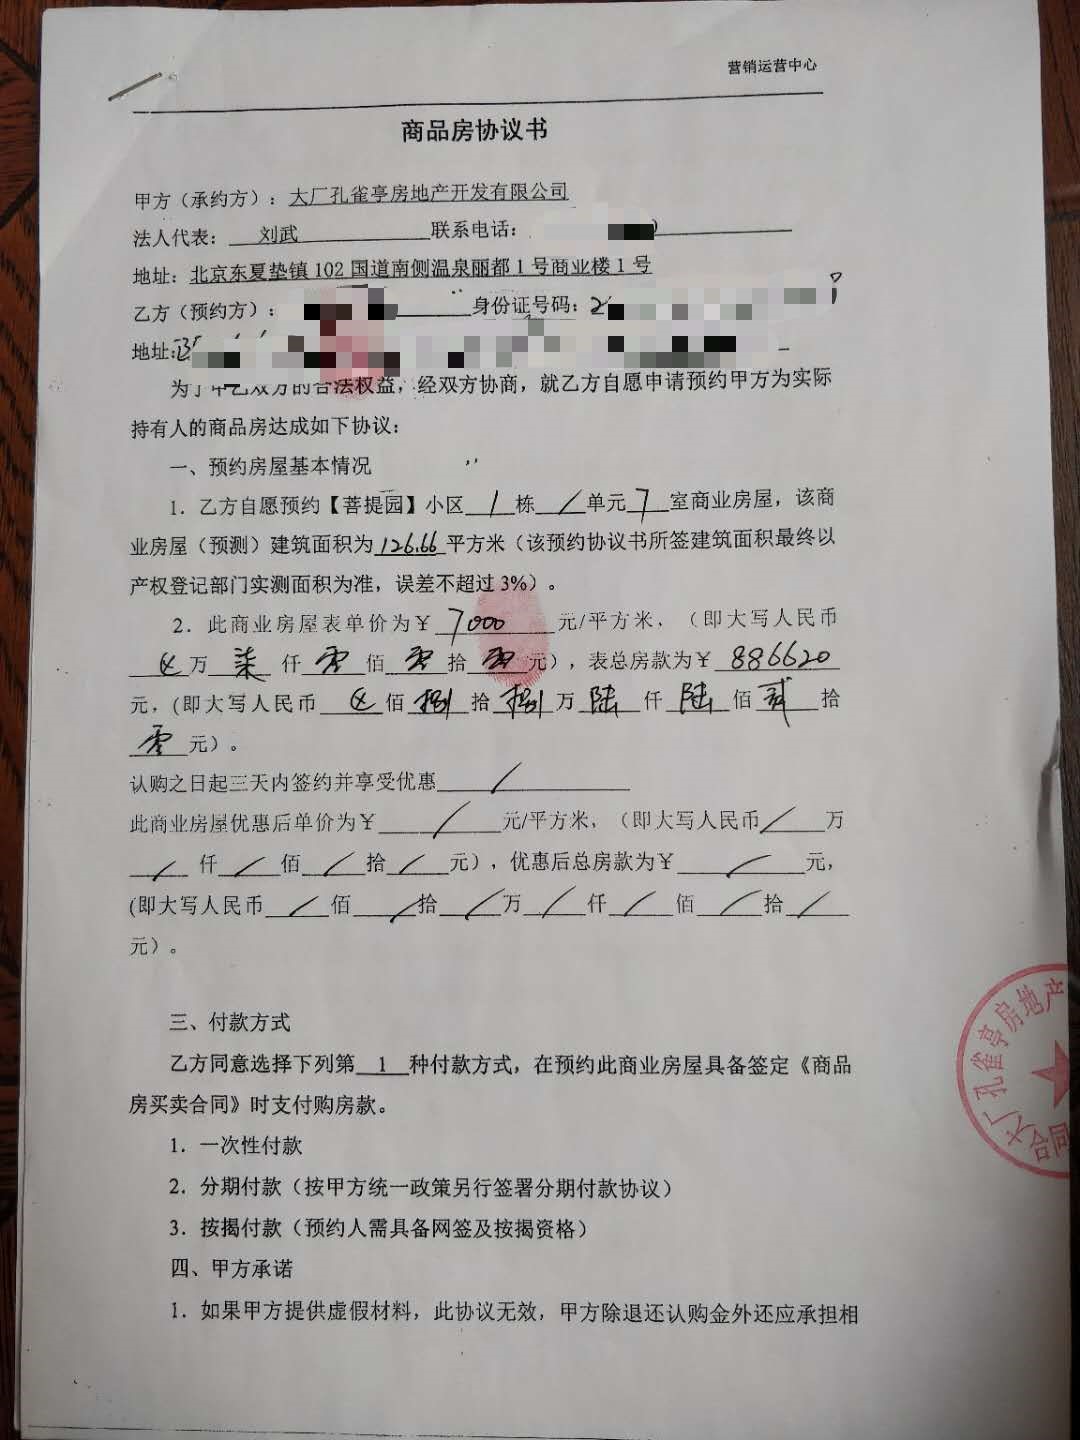 营销运营中心
商品房协议书
甲方（承约方）：大厂孔雀亭房地产开发有限公司
法人代表：刘武 联系电话：
地址：北京东夏垫镇102国道南侧温泉丽都1号商业楼1号
乙方（预约方）： 身份证号码：2
地址：
为了甲乙双方的合法权益，经双方协商，就乙方自愿申请预约甲方为实际
持有人的商品房达成如下协议：
一、预约房屋基本情况
1．乙方自愿预约【菩提园】小区 1 栋 / 单元 7 室商业房屋，该商
业房屋（预测）建筑面积为 126.66 平方米（该预约协议书所签建筑面积最终以
产权登记部门实测面积为准，误差不超过3%）。
2．此商业房屋表单价为￥ 7000 元/平方米，（即大写人民币
万 柒 仟 零 佰 零 拾 零 元），表总房款为￥ 886620
元，(即大写人民币 佰 捌 拾 捌 万 陆 仟 陆 佰 贰 拾
零 元）。
认购之日起三天内签约并享受优惠 /
此商业房屋优惠后单价为￥ / 元/平方米，（即大写人民币 / 万
/ 仟 / 佰 / 拾 / 元），优惠后总房款为￥ / 元，
(即大写人民币 / 佰 / 拾 / 万 / 仟 / 佰 / 拾 /
元）。
三、付款方式
乙方同意选择下列第 1 种付款方式，在预约此商业房屋具备签定《商品
房买卖合同》时支付购房款。
1．一次性付款
2．分期付款（按甲方统一政策另行签署分期付款协议）
3．按揭付款（预约人需具备网签及按揭资格）
四、甲方承诺
1．如果甲方提供虚假材料，此协议无效，甲方除退还认购金外还应承担相
大厂孔雀亭房地产